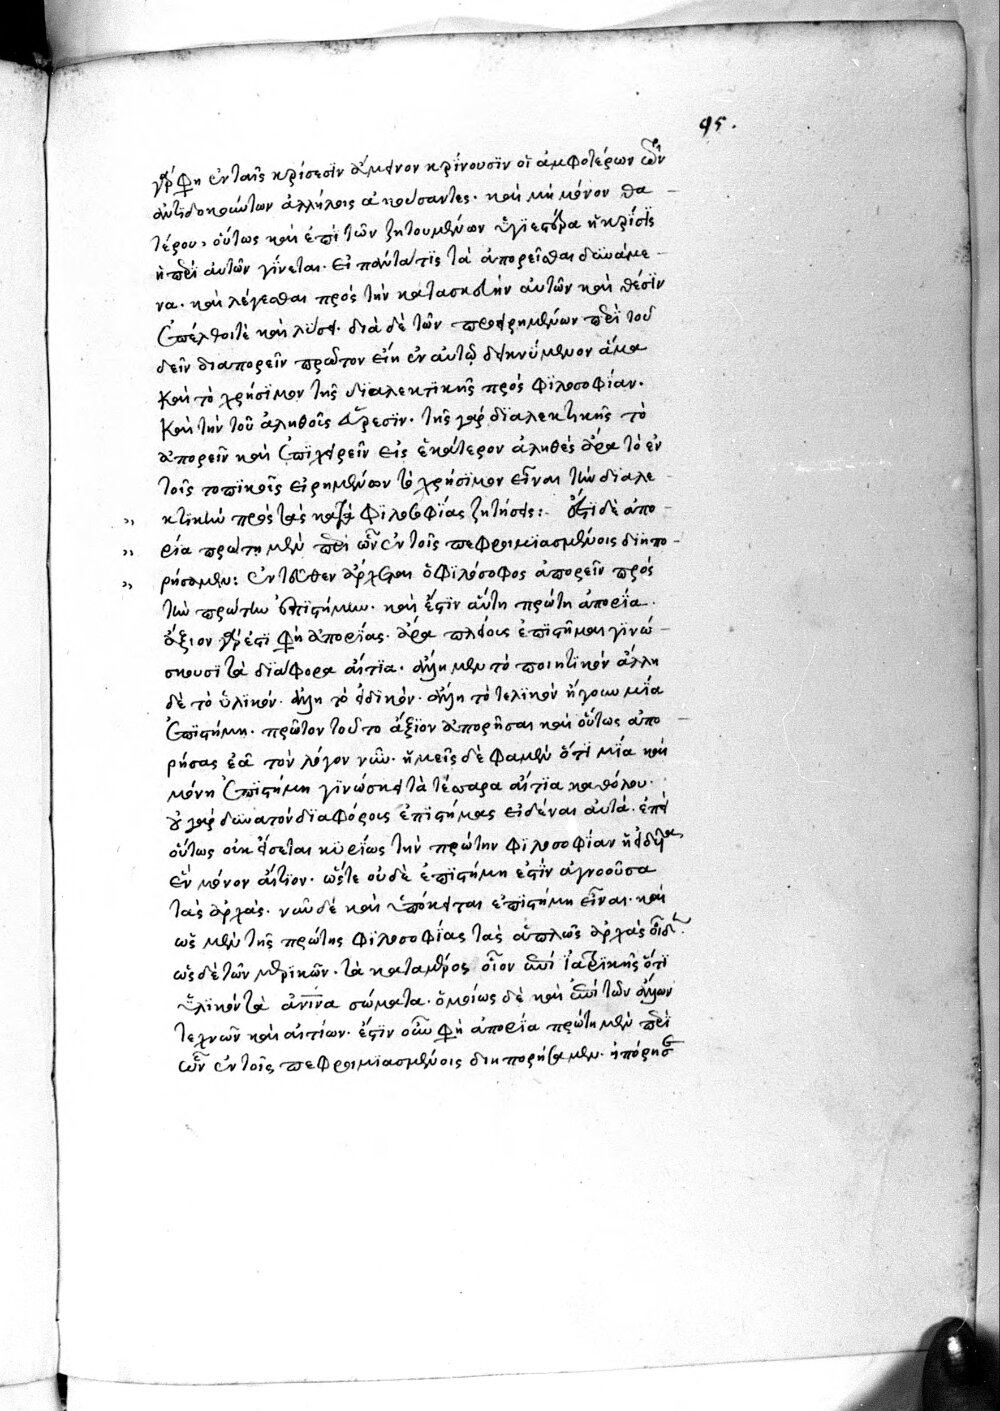 95.
γάρ φη ἐν ταῖς κρίσεσϊν ἄμεινον κρίνουσϊν οἱ ἀμφοτέρων τῶν
ἀντιδοκούντων ἀλλήλοις ἀκούσαντες. καὶ μὴ μόνον θα
τέρου, οὕτως καὶ ἐπὶ τῶν ζητουμένων ὑγιεστέρα ἡ κρίσϊς
ἡ περὶ αὐτῶν γίνεται. εἰ πάντα τὶς τὰ ἀπορεῖσθαι δυνάμε
να. καὶ λέγεσθαι πρὸς τὴν κατασκευὴν αὐτῶν καὶ θέσϊν
ἐπέλθοι τὲ καὶ λύσει. διὰ δὲ τῶν προειρημένων περὶ τοῦ
δεῖν διαπορεῖν πρῶτον εἴη ἐν αὐτῷ δεικνύμενον ἅμα
καὶ τὸ χρήσϊμον τῆς διαλεκτικῆς πρὸς φϊλοσοφίαν.
καὶ τὴν τοῦ ἀληθοῦς εὕρεσϊν. τῆς γὰρ δϊαλεκτικῆς τὸ
ἀπορεῖν καὶ ἐπϊχειρεῖν εἰς ἑκάτερον ἀληθὲς ἄρα τὸ ἐν
τοῖς τοπϊκοῖς εἰρημένον τὸ χρήσϊμον εἶναι τὴν διαλε
κτϊκὴν πρὸς τὰς κατὰ φϊλοσοφΐας ζητήσεις: ἔστϊ δὲ ἀπο
ρία πρώτη μὲν περὶ ὧν ἐν τοῖς πεφροιμϊασμένοις διηπο
ρήσαμεν: ἐντεῦθεν ἄρχεται ὁ φϊλόσοφος ἀπορεῖν πρὸς
τὴν πρώτην ἐπϊστήμην. καὶ ἔστϊν αὕτη πρώτη ἀπορΐα.
ἄξιον γάρ ἐστϊ φη ἀπορίας. ἆρα πλείους ἐπϊστῆμαι γϊνώ
σκουσϊ τὰ διάφορα αἴτϊα. ἄλλη μὲν τὸ ποιητϊκὸν ἄλλη
δὲ τὸ ὑλϊκόν. ἄλλη τὸ εἰδϊκόν. ἄλλη τὸ τελϊκὸν ἤγουν μΐα
ἐπϊστήμη. πρῶτον τοῦτο ἄξϊον ἀπορῆσαι καὶ οὕτως ἀπο
ρήσας ἐᾷ τὸν λόγον νῦν. ἡμεῖς δὲ φαμὲν ὅτϊ μΐα καὶ
μόνη ἐπϊστήμη γϊνώσκει τὰ τέσσαρα αἴτϊα καθόλου.
οὐ γὰρ δυνατὸν δϊαφόροις ἐπϊστήμας εἰδέναι αὐτά. ἐπεὶ
οὕτως οὐκ εἴσεται κυρίως τὴν πρώτην φϊλοσοφΐαν ἡ εἰδυῖα
ἓν μόνον αἴτϊον. ὥστε οὐδὲ ἐπϊστήμη ἐστϊν ἀγνοοῦσα
τὰς ἀρχάς. νῦν δὲ καὶ ὑπόκειται ἐπϊστήμη εἶναι. καὶ
ὡς μὲν τῆς πρώτης φϊλοσοφΐας τὰς ἁπλῶς ἀρχὰς οἶδε.
ὡς δὲ τῶν μερϊκῶν. τὰ κατὰ μέρος οἷον ἐπὶ ἰατρϊκῆς ὅτϊ
ὑλϊκὸν τὰ ἀνινα σώματα. ὁμοίως δὲ καὶ ἐπὶ τῶν ἄλλων
τεχνῶν καὶ αἰτίων. ἔστϊν οὖν φη ἀπορΐα πρώτη μὲν περὶ
ὧν ἐν τοῖς πεφροιμϊασμένοις διηπορήσαμεν. ἠπόρησε